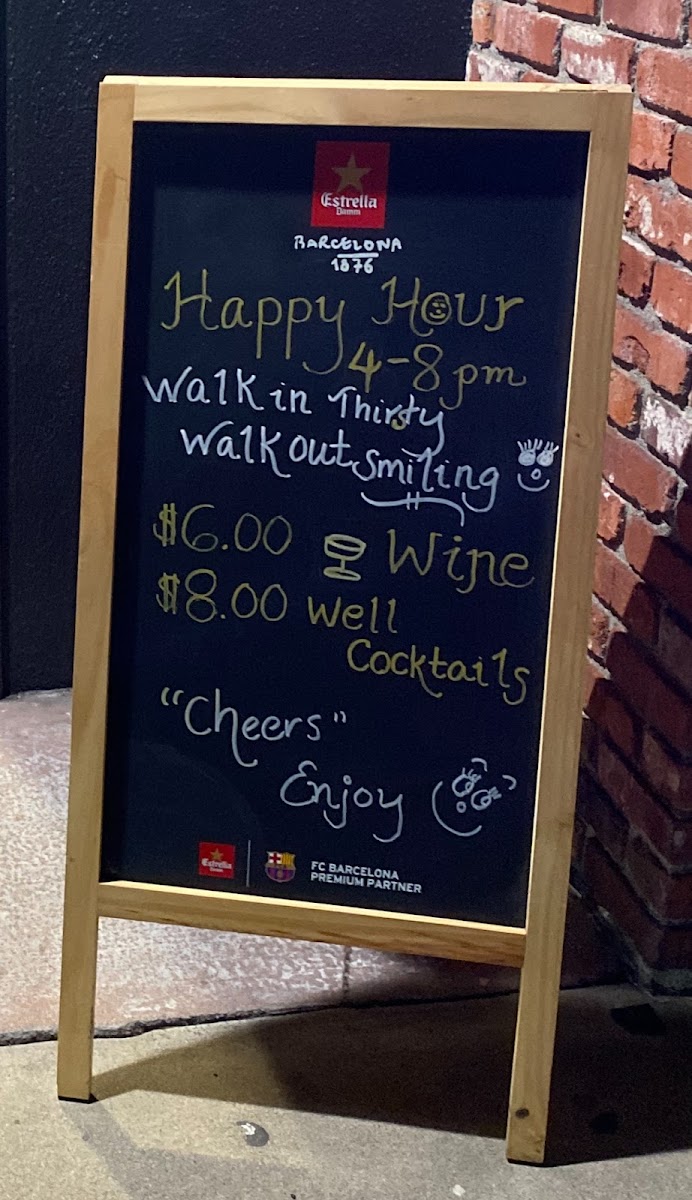 Estrella
Damm
BARCELONA
1876
Happy Hour
4-8pm
Walk in Thirsty
Walk out smiling
$6.00 Wine
$8.00 Well
Cocktails
"Cheers"
Enjoy
Estrella
Damm
FC BARCELONA
PREMIUM PARTNER